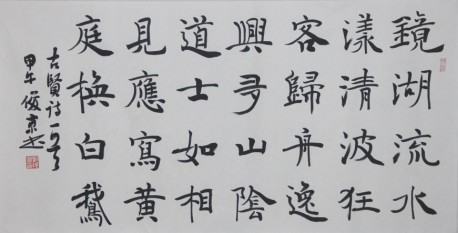 鏡湖流水
漾清波狂
客歸舟逸
興多山陰
道士如相
見應寫黃
庭換白鵝
古賢詩一首
甲午俊